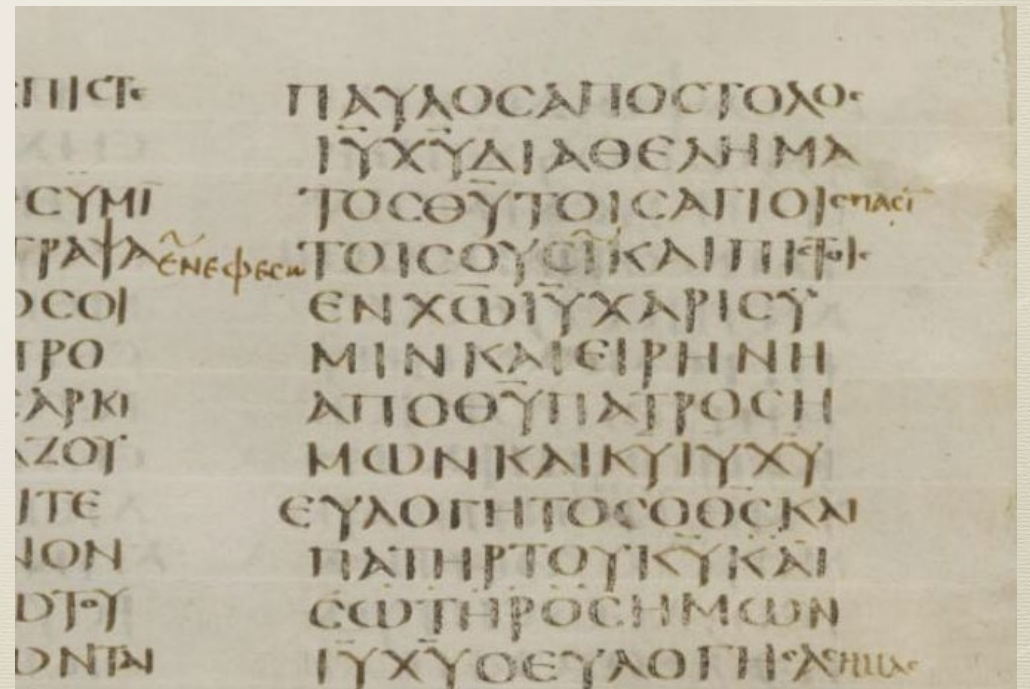 ΠΙϹΤΟ
ϹΥΜΙ
ΓΡΑΨΑ
ΟϹΟΙ
ΠΡΟ
ΑΡΚΙ
ΑΖΟΥ
ΙΤΕ
ΝΟΝ
ΩΤΟΥ
ΩΝΤΑΙ
ΠΑΥΛΟϹΑΠΟϹΤΟΛΟϹ
Ι̅Υ̅Χ̅Υ̅ΔΙΑΘΕΛΗΜΑ
ΤΟϹΘ̅Υ̅ΤΟΙϹΑΓΙΟΙϹπαϲι
ενεφεϲω ΤΟΙϹΟΥϹΙΚΑΙΠΙϹΤΟΙϹ
ΕΝΧ̅Ω̅Ι̅Υ̅ΧΑΡΙϹΥ
ΜΙΝΚΑΙΕΙΡΗΝΗ
ΑΠΟΘ̅Υ̅ΠΑΤΡΟϹΗ
ΜΩΝΚΑΙΚ̅Υ̅Ι̅Υ̅Χ̅Υ̅
ΕΥΛΟΓΗΤΟϹΟΘ̅Ϲ̅ΚΑΙ
ΠΑΤΗΡΤΟΥΚ̅Υ̅ΚΑΙ
ϹΩΤΗΡΟϹΗΜΩΝ
Ι̅Υ̅Χ̅Υ̅ΟΕΥΛΟΓΗϹΑϹΗΜΑϹ